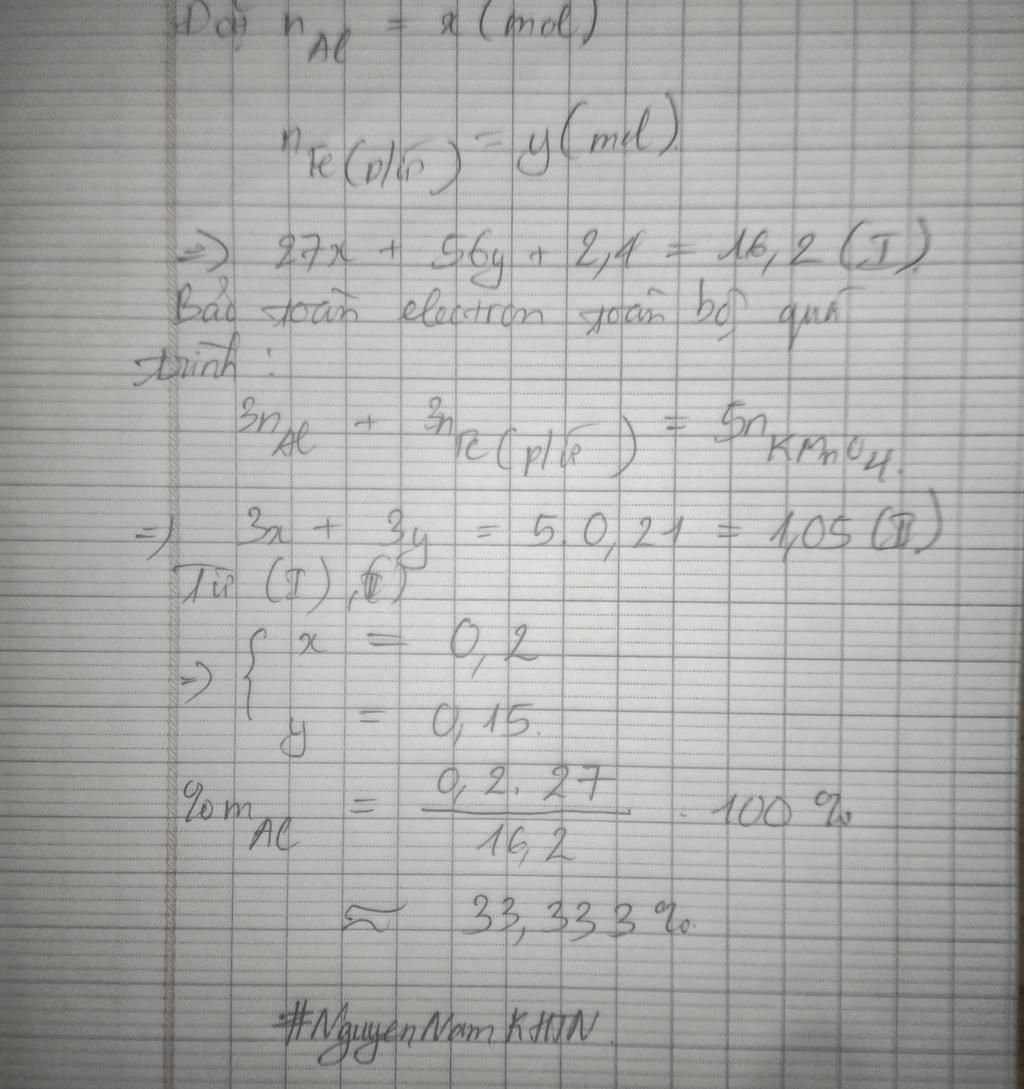 Đặt n Al = x (mol)
n Fe (p/ứ) = y (mol)
=> 27x + 56y + 2,4 = 16,2 (I)
Bảo toàn electron toàn bộ quá
trình :
3n Al + 3n Fe (p/ứ) = 5n KMnO4.
=> 3x + 3y = 5.0,21 = 1,05 (II)
Từ (I), (II)
=> { x = 0,2
y = 0,15.
%m Al = 0,2.27 / 16,2 . 100 %
≈ 33,333 %.
#NguyenNamKHTN